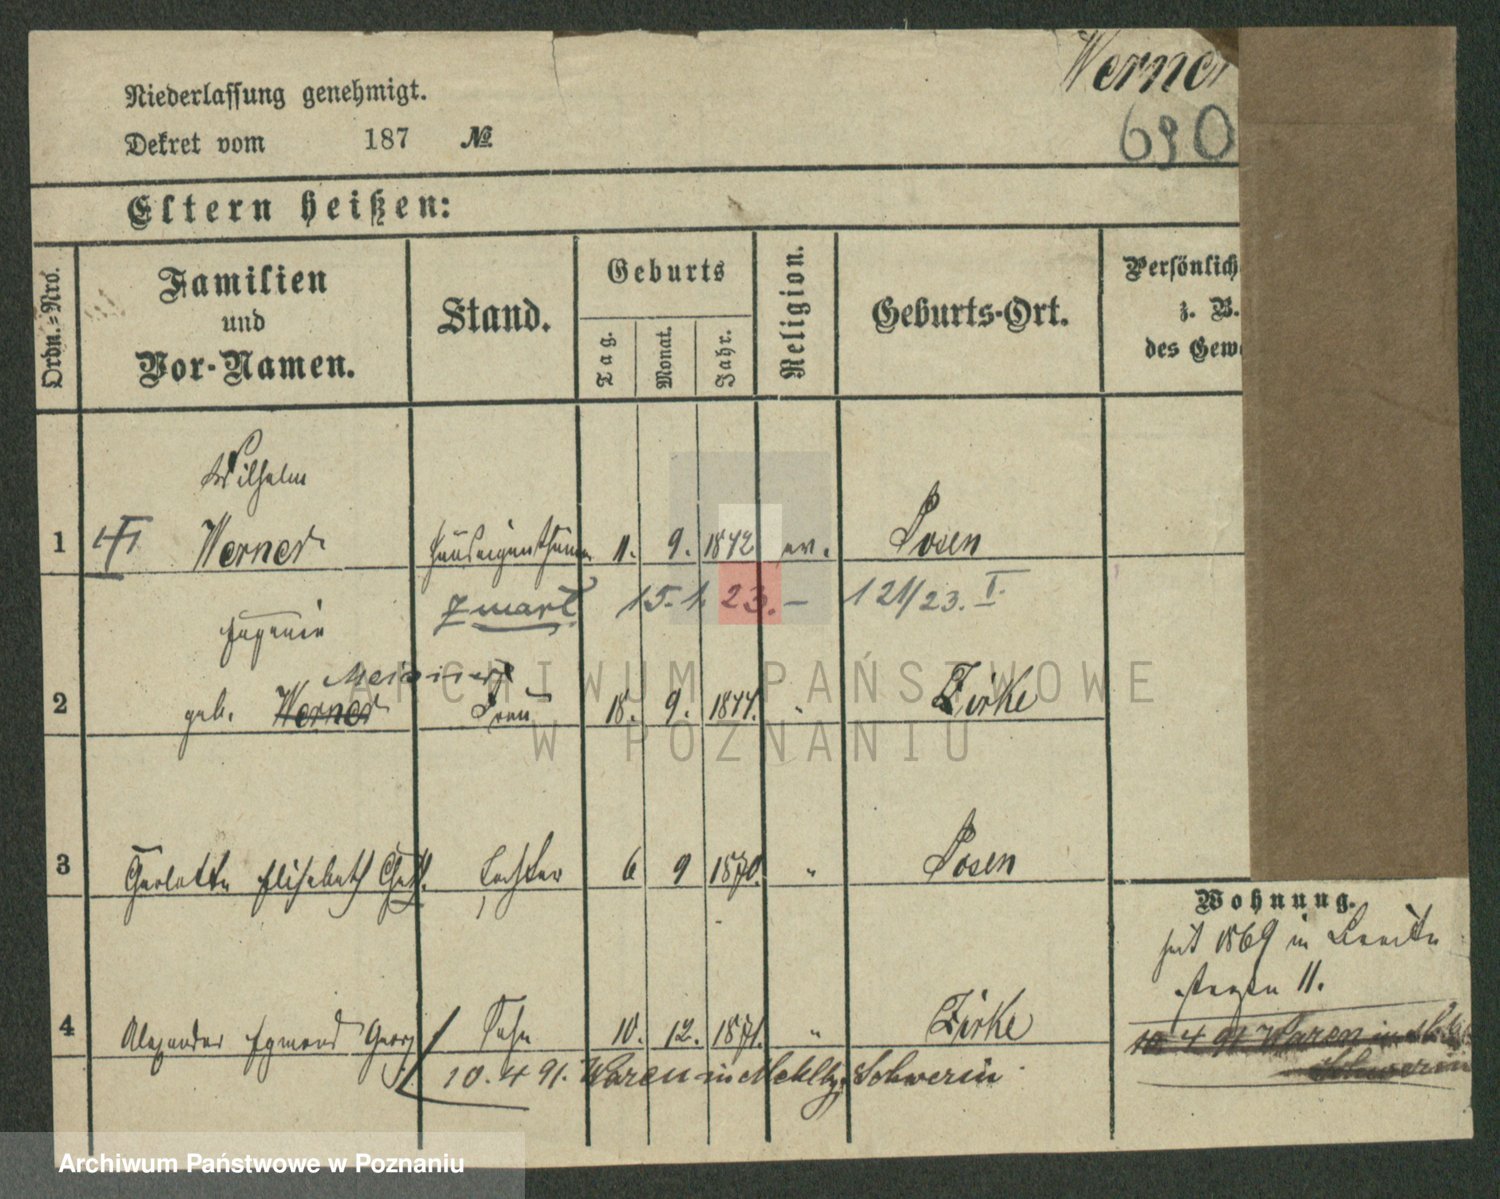 Werner
690
Niederlassung genehmigt.
Dekret vom 187 №
Eltern heißen:
Ordn.=Nro.
Familien
und
Vor-Namen.
Stand.
Geburts
Tag.
Monat.
Jahr.
Religion.
Geburts-Ort.
Persönlich
z. B.
des Gew
Wilhelm
1 Werner Hauseigenthümer 11. 9. 1842 ev. Posen
15. 1. 23. – 121/23. I.
Eugenie
2 geb. Werner Frau 18. 9. 1844. " Zirke
3 Charlotte Elisabeth Tochter 6 9 1870. " Posen
Wohnung.
seit 1869 in Breite
straße 11.
4 Alexander Egmond Georg Sohn 10. 12. 1871. " Zirke
10. 4 91 Waren in
Schwerin
10. 4 91. Waren in Meklbg. Schwerin
ARCHIWUM PAŃSTWOWE
W POZNANIU
Archiwum Państwowe w Poznaniu